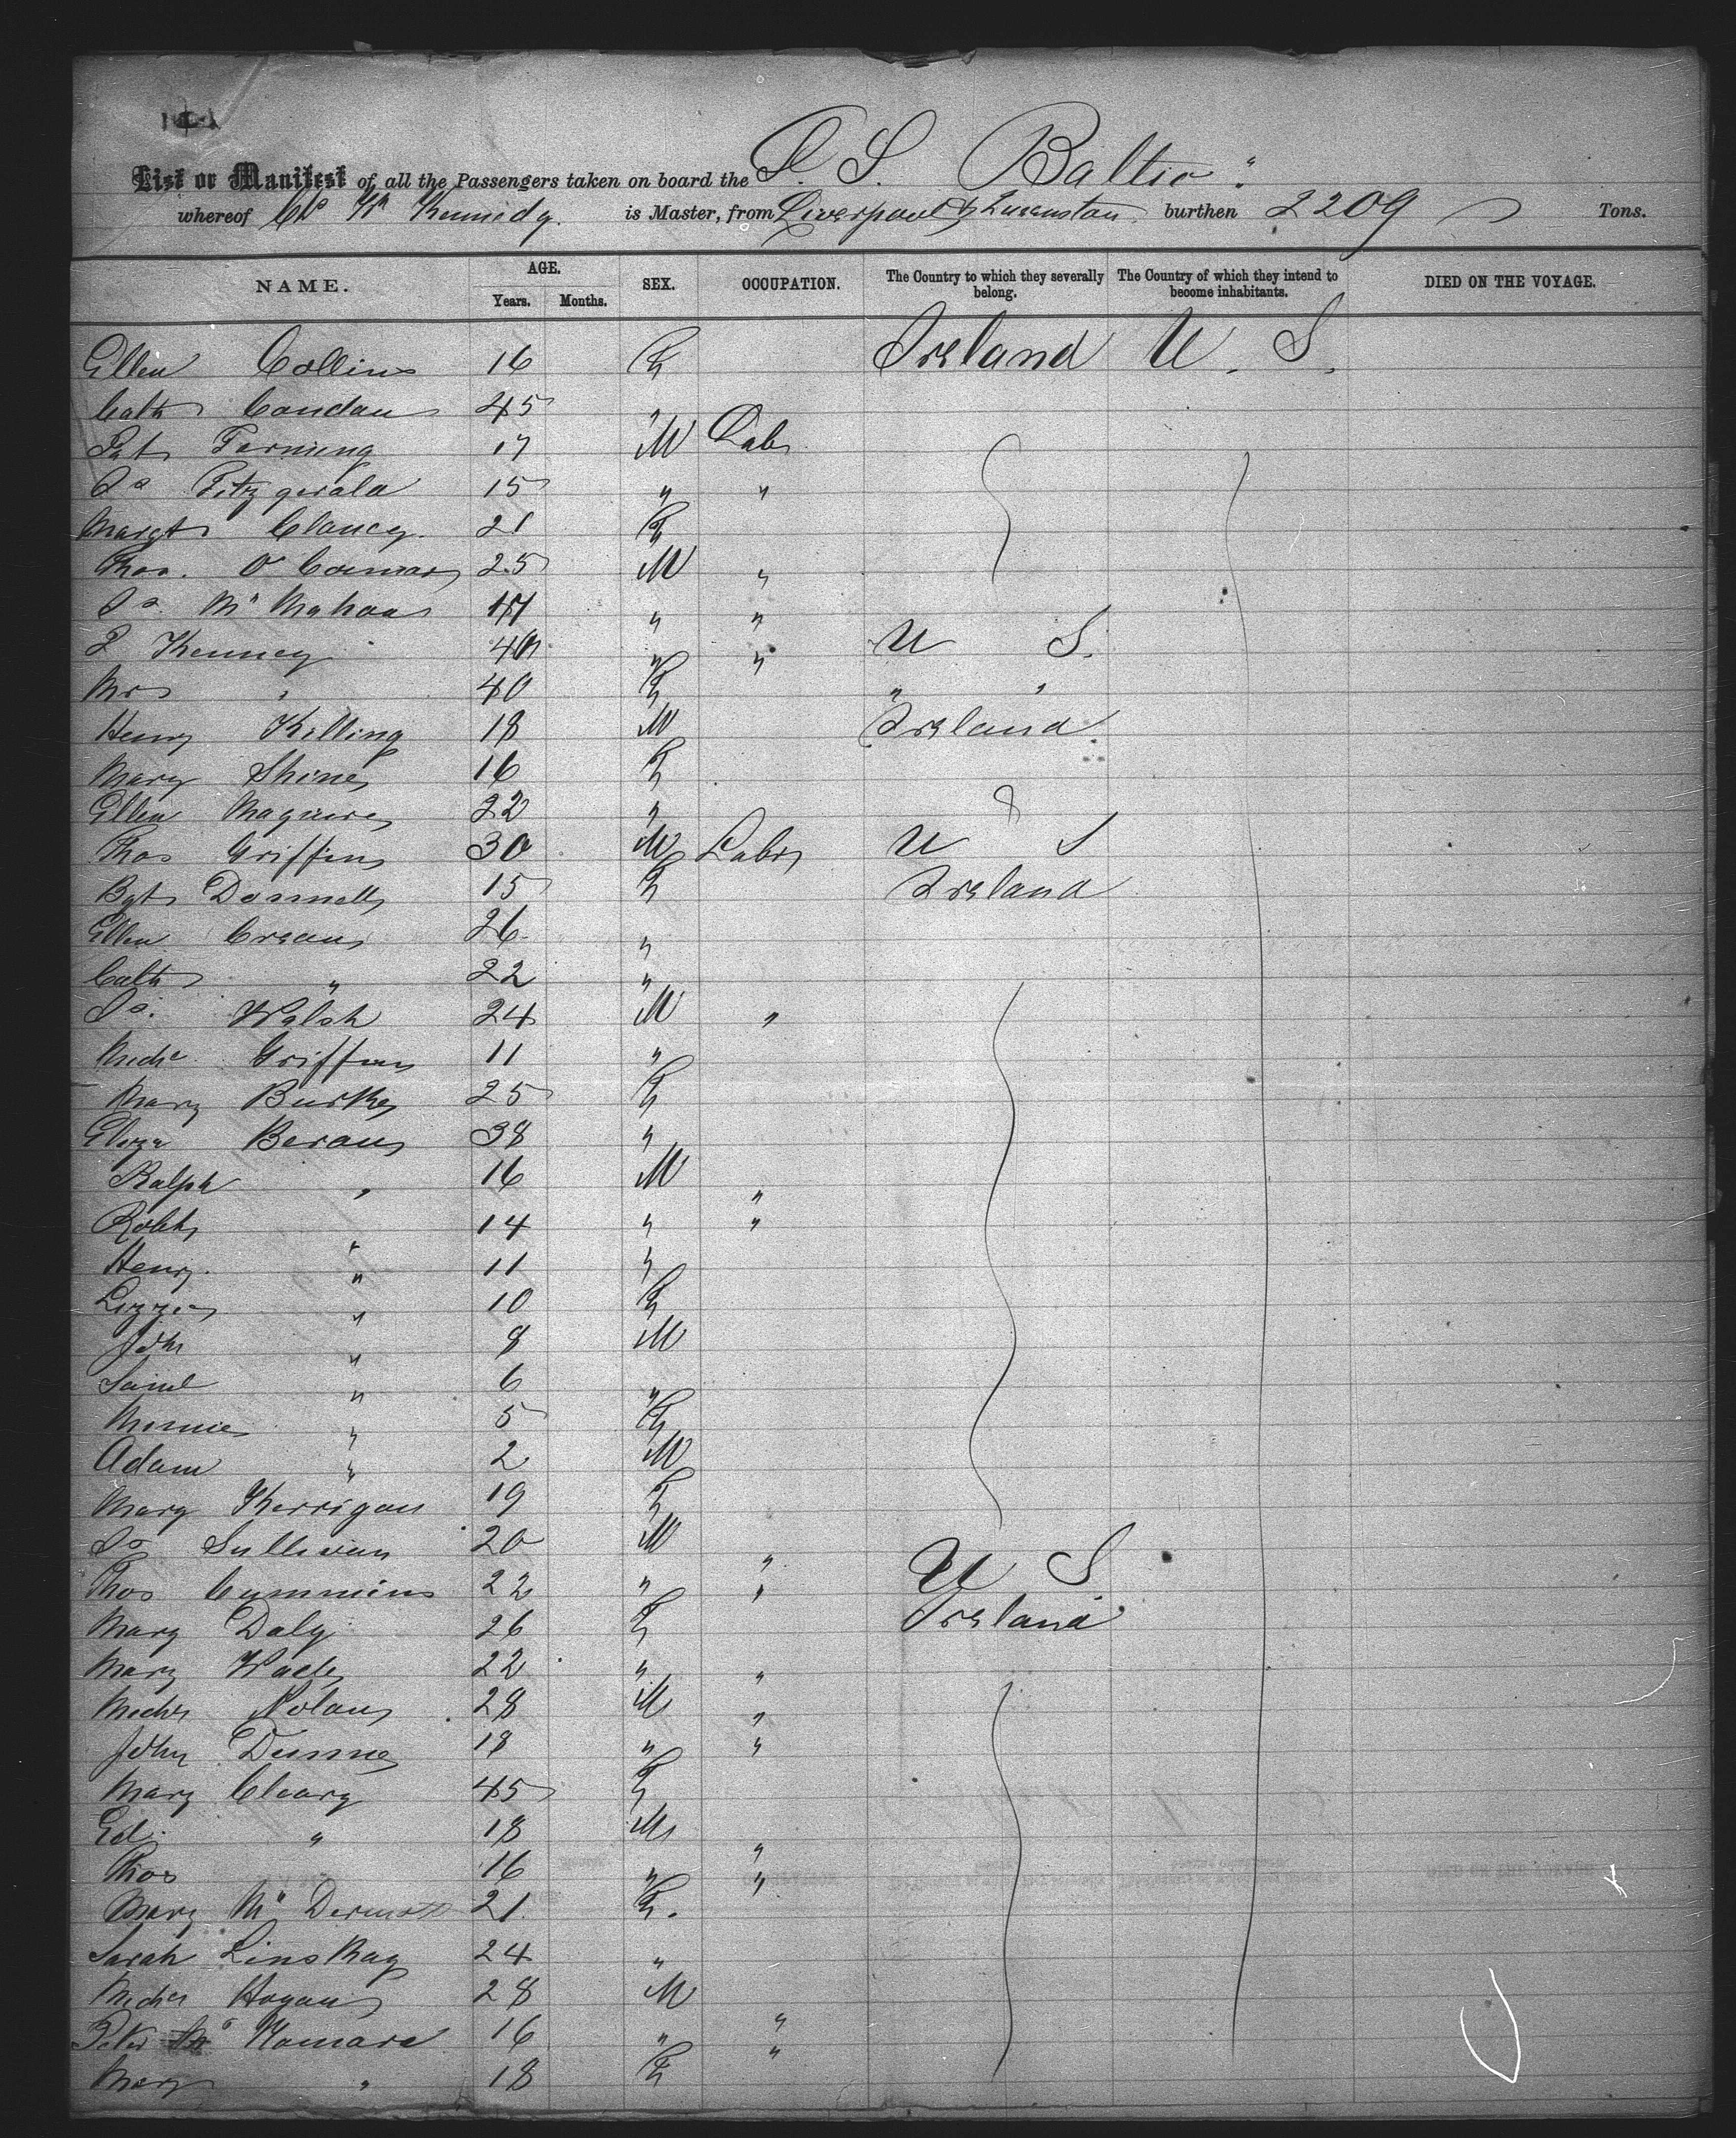 List or Manifest of all the Passengers taken on board the S. S. Baltic
whereof Chs Wm Kennedy. is Master, from Liverpool & Queenstown burthen 2209 Tons.
NAME. AGE. Years. Months. SEX. OCCUPATION. The Country to which they severally belong. The Country of which they intend to become inhabitants. DIED ON THE VOYAGE.
Ellen Collins 16 F Ireland U. S.
Cath Condon 45 "
Pat 17 M Labr
Jas Fitzgerald 15 " "
Margt Clancy 21 F
Thos. O'Connor 25 M "
Jas McMahon " "
P Kenney " " U S.
Mrs " 40 F " "
Henry Killing 18 M Ireland
Mary Shine 16 F
Ellen Maguire 22 "
Thos Griffin 30 M Labr U S
Bgt Donnelly 15 F Ireland
Ellen Crean 26 "
Cath " 22 "
Js. Walsh 24 M "
Michl Griffin 11 "
Mary Burke 25 F
Eliza Beran 38 "
Ralph " 16 M "
Robt " 14 " "
Henry. " 11 "
Lizzie " 10 F
John " 8 M
Saml " 6 "
Minnie " 5 F
Adam " 2 M
Mary Kerrigan 19 F
Jas Sullivan 20 M " U S.
Thos Cummins 22 " " Ireland
Mary Daly 26 F
Mary Wade 22 " "
Michl Nolan 28 M "
John Dunne 18 " "
Mary Cleary 45 F
Ed. " 18 M "
Thos 16 " "
Mary McDermott 21 F.
Sarah Linskey 24 "
Michl Hogan 28 M "
Peter McNamara 16 " "
Mary " 18 F